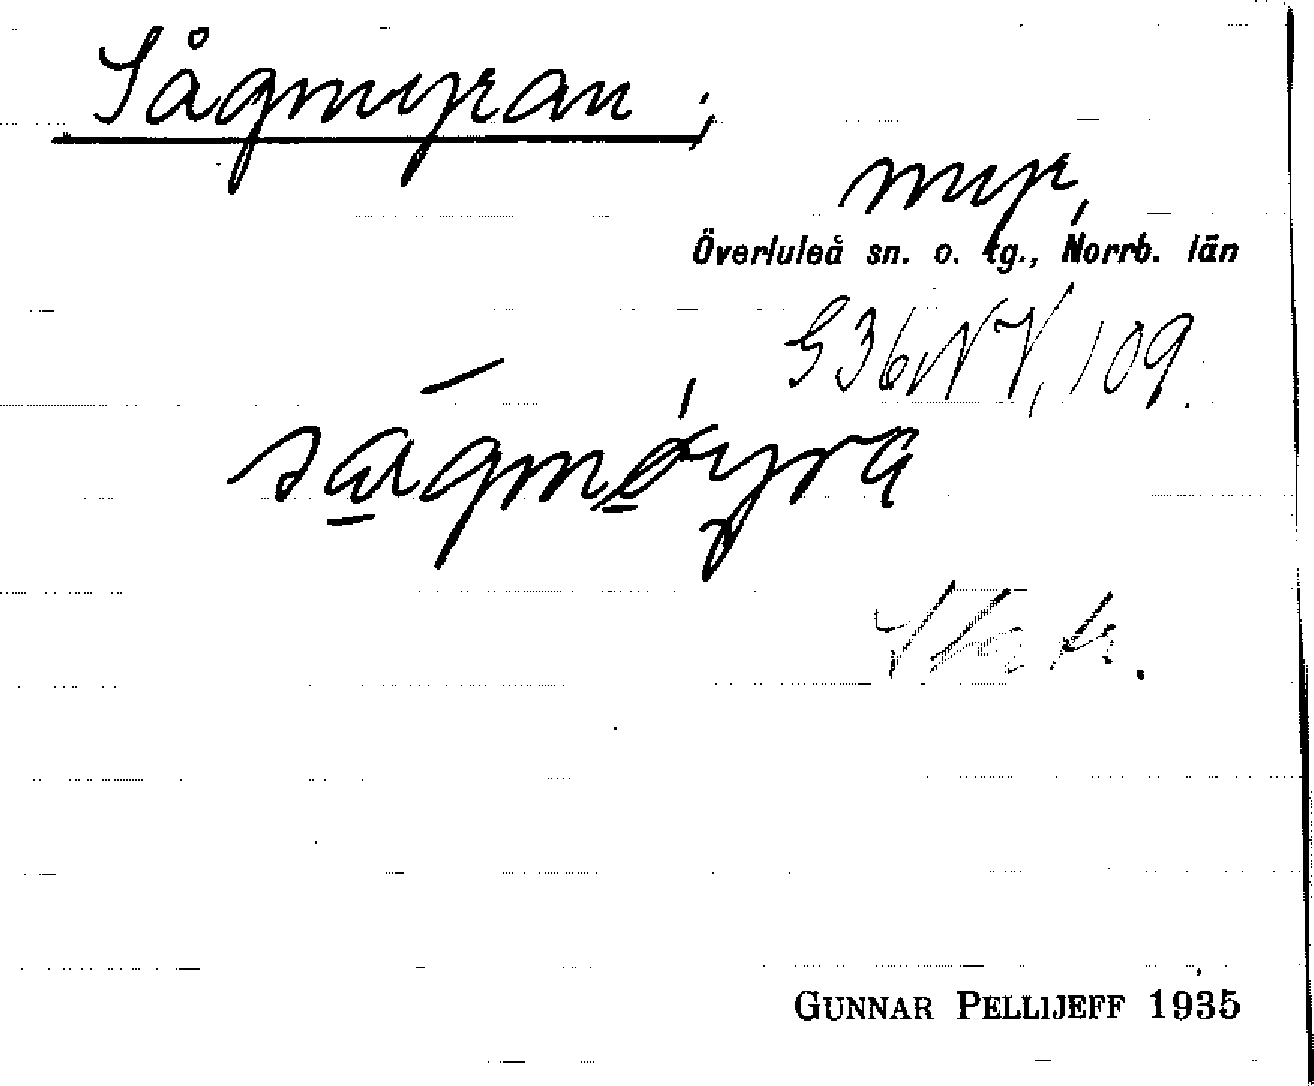 Sågmyran;
myr,
Överluleå sn. o. tg., Norrb. län
G36NV, 109.
sågmøyra
GUNNAR PELLIJEFF 1935